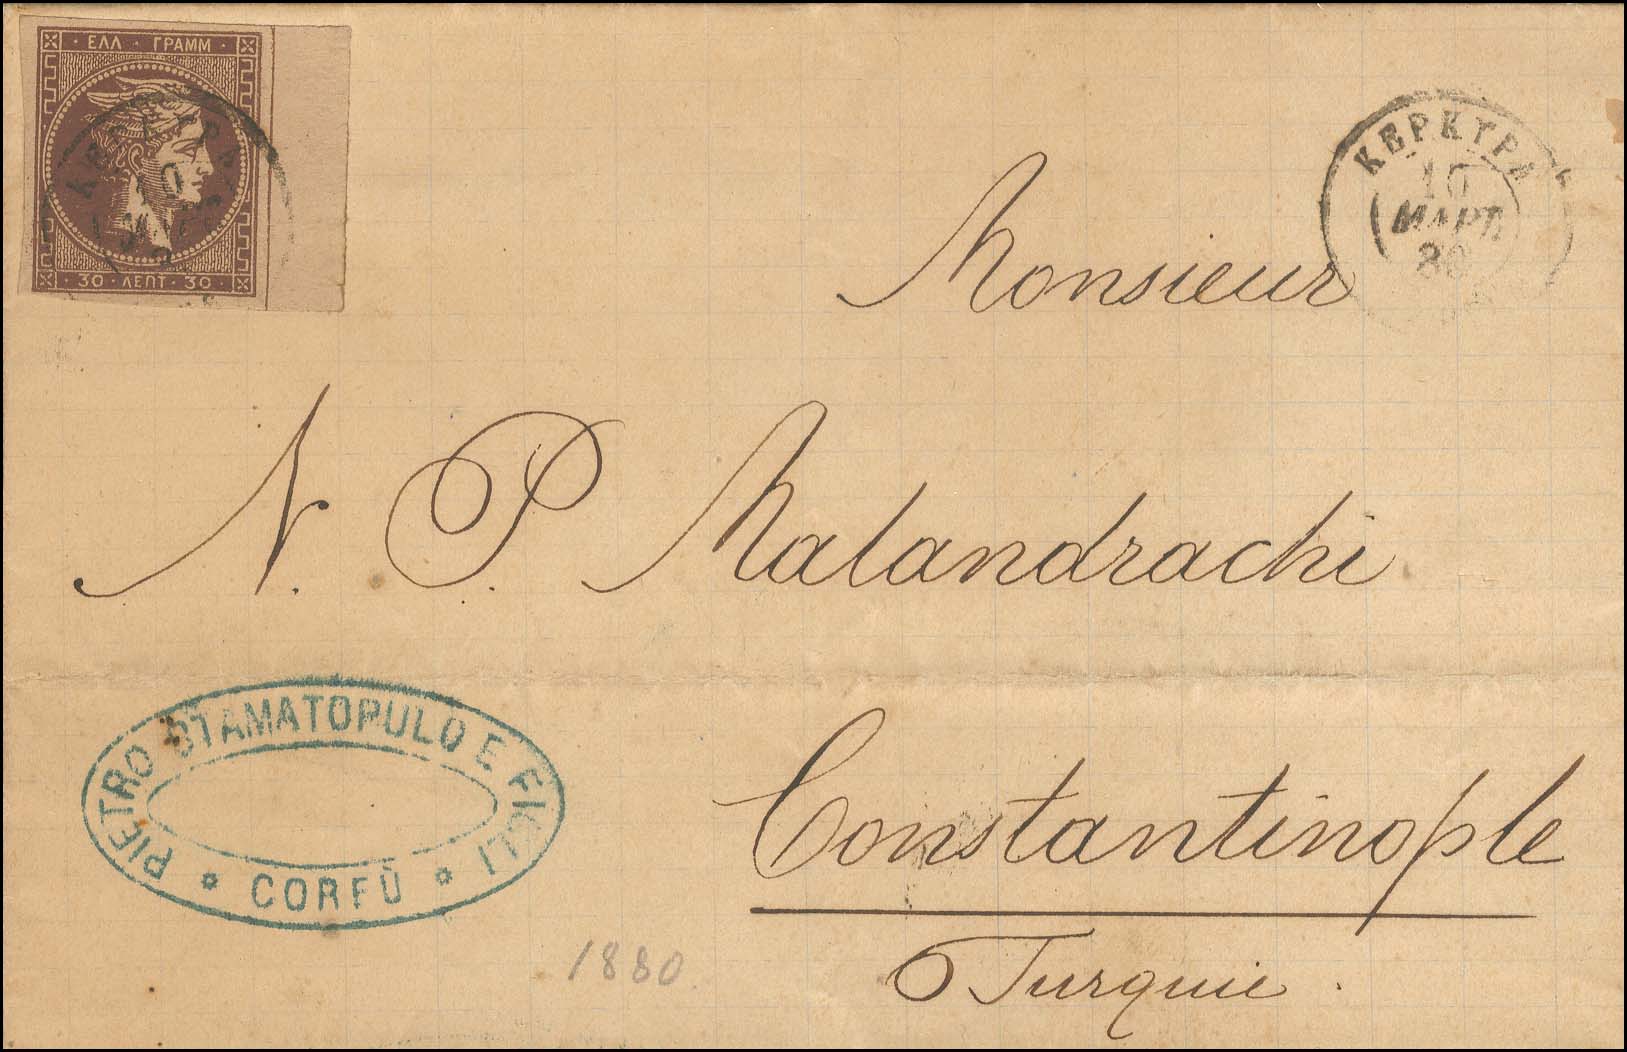 ΕΛΛ · ΓΡΑΜΜ
30 · ΛΕΠΤ · 30
ΚΕΡΚΥΡΑ
10
ΜΑΡΤ
80
Monsieur
N. P. Malandrachi
Constantinople
Turquie.
PIETRO STAMATOPULO E FIGLI
CORFÙ
1880.